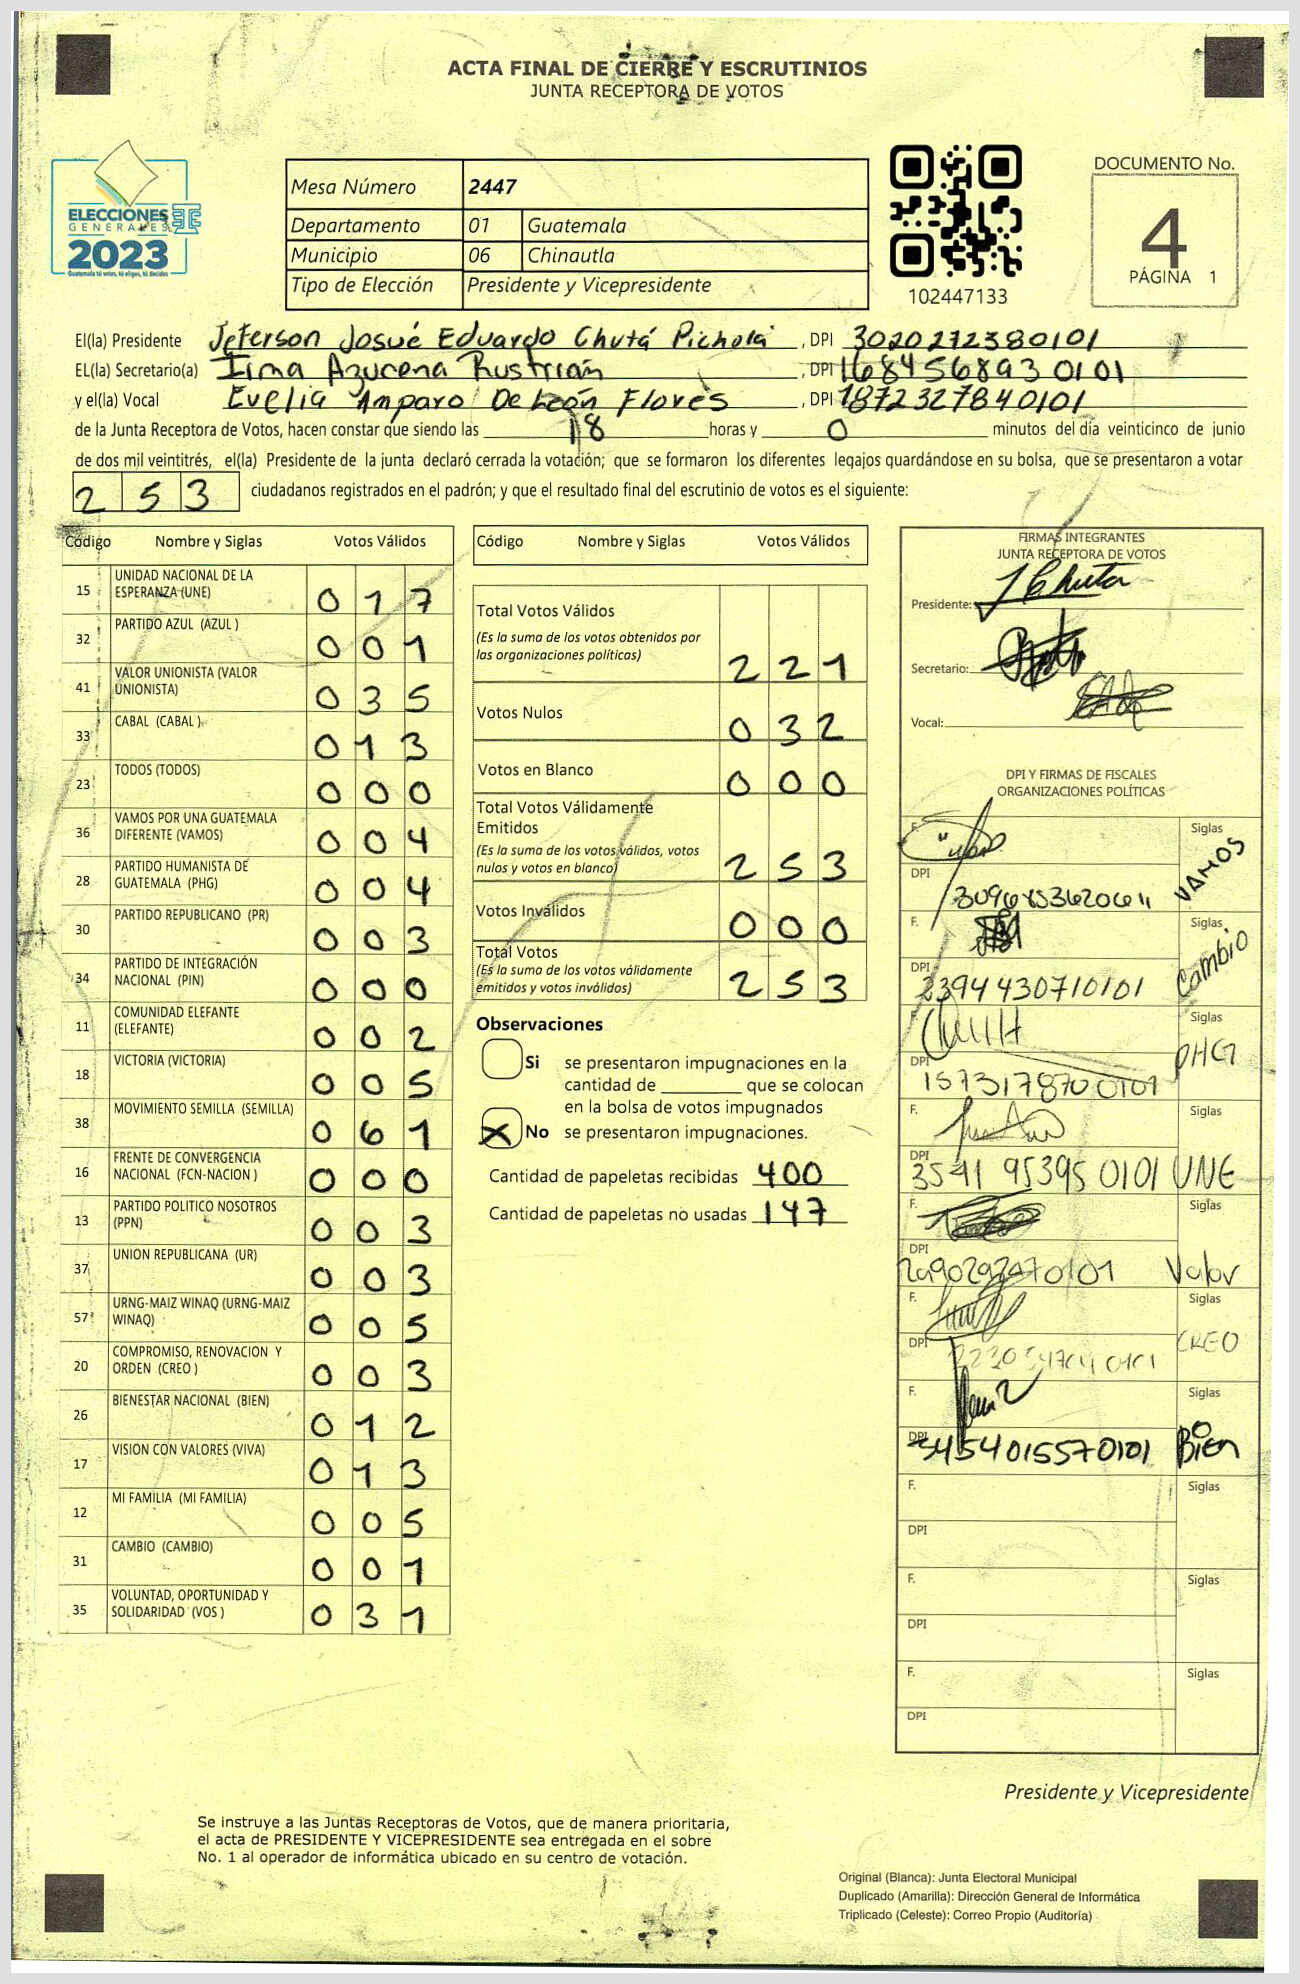 ACTA FINAL DE CIERRE Y ESCRUTINIOS
JUNTA RECEPTORA DE VOTOS
ELECCIONES
GENERALES
2023
Guatemala tú votas, tú eliges, tú decides
Mesa Número 2447
Departamento 01 Guatemala
Municipio 06 Chinautla
Tipo de Elección Presidente y Vicepresidente
102447133
DOCUMENTO No.
4
PÁGINA 1
El(la) Presidente Jeferson Josué Eduardo Chutá Picholá, DPI 3020272380101
EL(la) Secretario(a) Irma Azucena Rustrián, DPI 1684568930101
y el(la) Vocal Evelia Amparo De León Flores, DPI 1872327840101
de la Junta Receptora de Votos, hacen constar que siendo las 18 horas y 0 minutos del día veinticinco de junio
de dos mil veintitrés, el(la) Presidente de la junta declaró cerrada la votación; que se formaron los diferentes legajos guardándose en su bolsa, que se presentaron a votar
253 ciudadanos registrados en el padrón; y que el resultado final del escrutinio de votos es el siguiente:
Código Nombre y Siglas Votos Válidos
15 UNIDAD NACIONAL DE LA ESPERANZA (UNE) 017
32 PARTIDO AZUL (AZUL ) 001
41 VALOR UNIONISTA (VALOR UNIONISTA) 035
33 CABAL (CABAL ) 013
23 TODOS (TODOS) 000
36 VAMOS POR UNA GUATEMALA DIFERENTE (VAMOS) 004
28 PARTIDO HUMANISTA DE GUATEMALA (PHG) 004
30 PARTIDO REPUBLICANO (PR) 003
34 PARTIDO DE INTEGRACIÓN NACIONAL (PIN) 000
11 COMUNIDAD ELEFANTE (ELEFANTE) 002
18 VICTORIA (VICTORIA) 005
38 MOVIMIENTO SEMILLA (SEMILLA) 061
16 FRENTE DE CONVERGENCIA NACIONAL (FCN-NACION ) 000
13 PARTIDO POLITICO NOSOTROS (PPN) 003
37 UNION REPUBLICANA (UR) 003
57 URNG-MAIZ WINAQ (URNG-MAIZ WINAQ) 005
20 COMPROMISO, RENOVACION Y ORDEN (CREO ) 003
26 BIENESTAR NACIONAL (BIEN) 012
17 VISION CON VALORES (VIVA) 013
12 MI FAMILIA (MI FAMILIA) 005
31 CAMBIO (CAMBIO) 001
35 VOLUNTAD, OPORTUNIDAD Y SOLIDARIDAD (VOS ) 031
Código Nombre y Siglas Votos Válidos
Total Votos Válidos 221
(Es la suma de los votos obtenidos por
las organizaciones políticas)
Votos Nulos 032
Votos en Blanco 000
Total Votos Válidamente
Emitidos
(Es la suma de los votos válidos, votos
nulos y votos en blanco) 253
Votos Inválidos 000
Total Votos
(Es la suma de los votos válidamente
emitidos y votos inválidos) 253
Observaciones
Si se presentaron impugnaciones en la
cantidad de ________ que se colocan
en la bolsa de votos impugnados
X No se presentaron impugnaciones.
Cantidad de papeletas recibidas 400
Cantidad de papeletas no usadas 147
FIRMAS INTEGRANTES
JUNTA RECEPTORA DE VOTOS
Presidente: J Chuta
Secretario:
Vocal:
DPI Y FIRMAS DE FISCALES
ORGANIZACIONES POLÍTICAS
F. Siglas VAMOS
DPI
F. Siglas Cambio
DPI 2394430710101
F. Siglas PHG
DPI 1573178700101
F. Siglas UNE
DPI 3541 95395 0101
F. Siglas Valor
DPI
F. Siglas CREO
DPI
F. Siglas Bien
DPI 3454015570101
F. Siglas
DPI
F. Siglas
DPI
F. Siglas
DPI
Presidente y Vicepresidente
Se instruye a las Juntas Receptoras de Votos, que de manera prioritaria,
el acta de PRESIDENTE Y VICEPRESIDENTE sea entregada en el sobre
No. 1 al operador de informática ubicado en su centro de votación.
Original (Blanca): Junta Electoral Municipal
Duplicado (Amarilla): Dirección General de Informática
Triplicado (Celeste): Correo Propio (Auditoría)